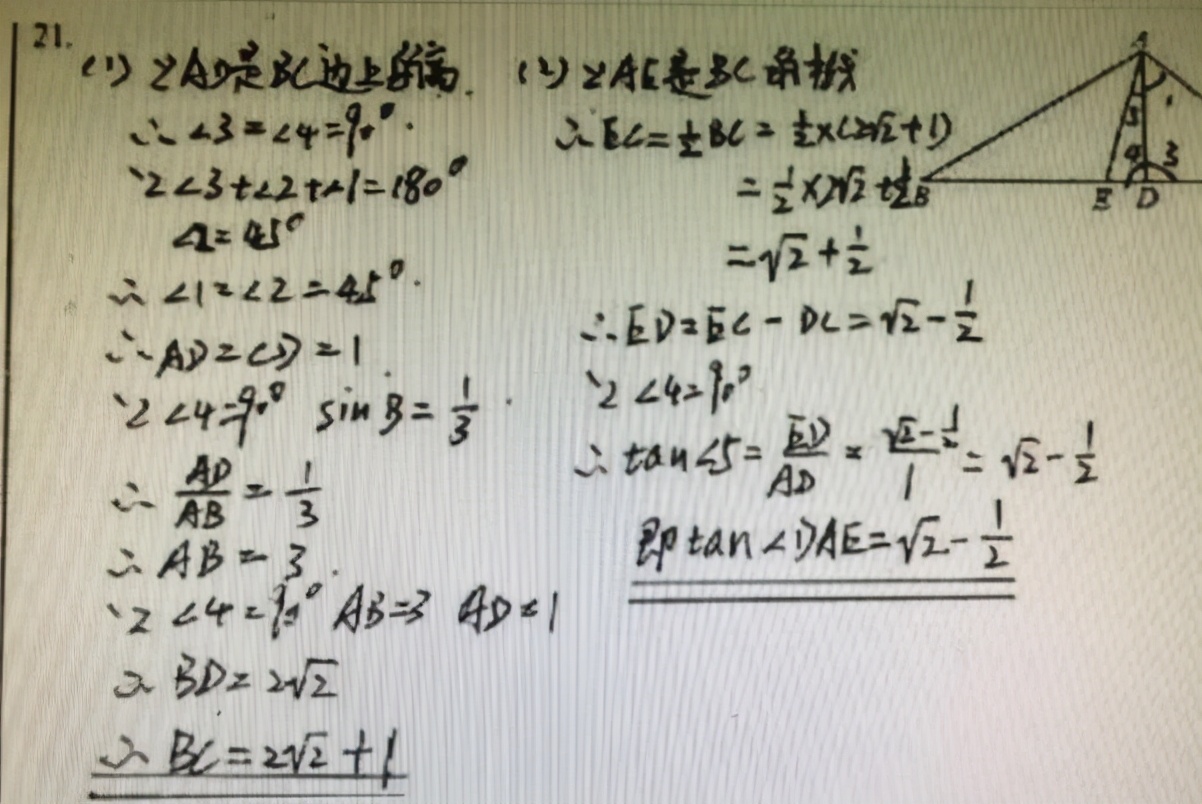 21.
(1) ∵AD是BC边上的高.
∴∠3=∠4=90°.
∵∠3+∠2+∠1=180°
∠2=45°
∴∠1=∠2=45°.
∴AD=CD=1
∵∠4=90° sinB=1/3.
∴AD/AB=1/3
∴AB=3.
∵∠4=90° AB=3 AD=1
∴BD=2√2
∴BC=2√2+1
(2) ∵AE是BC
∴EC=1/2BC=1/2×(2√2+1)
=1/2×2√2+1/2
=√2+1/2
∴ED=EC-DC=√2-1/2
∵∠4=90°
∴tan∠5=ED/AD=(√2-1/2)/1=√2-1/2
即tan∠DAE=√2-1/2
A
1
5
4 3
B E D